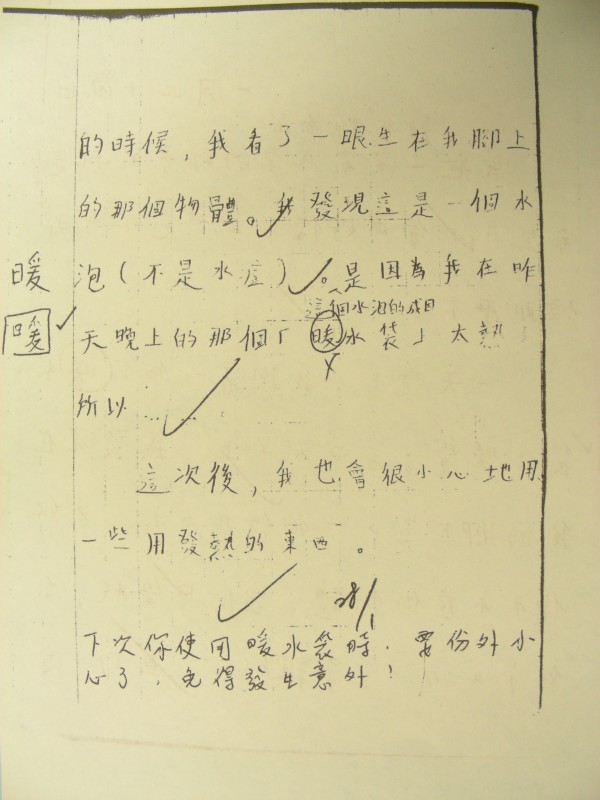 的時候，我看了一眼生在我腳上
的那個物體。我發現這是一個水
暖 泡（不是水痘）。是因為我在昨
這個水泡的成因
暖 天晚上的那個「暖水袋」太熱了
所以……
這次後，我也會很小心地用
一些用發熱的東西。
28/1
下次你使用暖水袋時，要份外小
心了，免得發生意外！